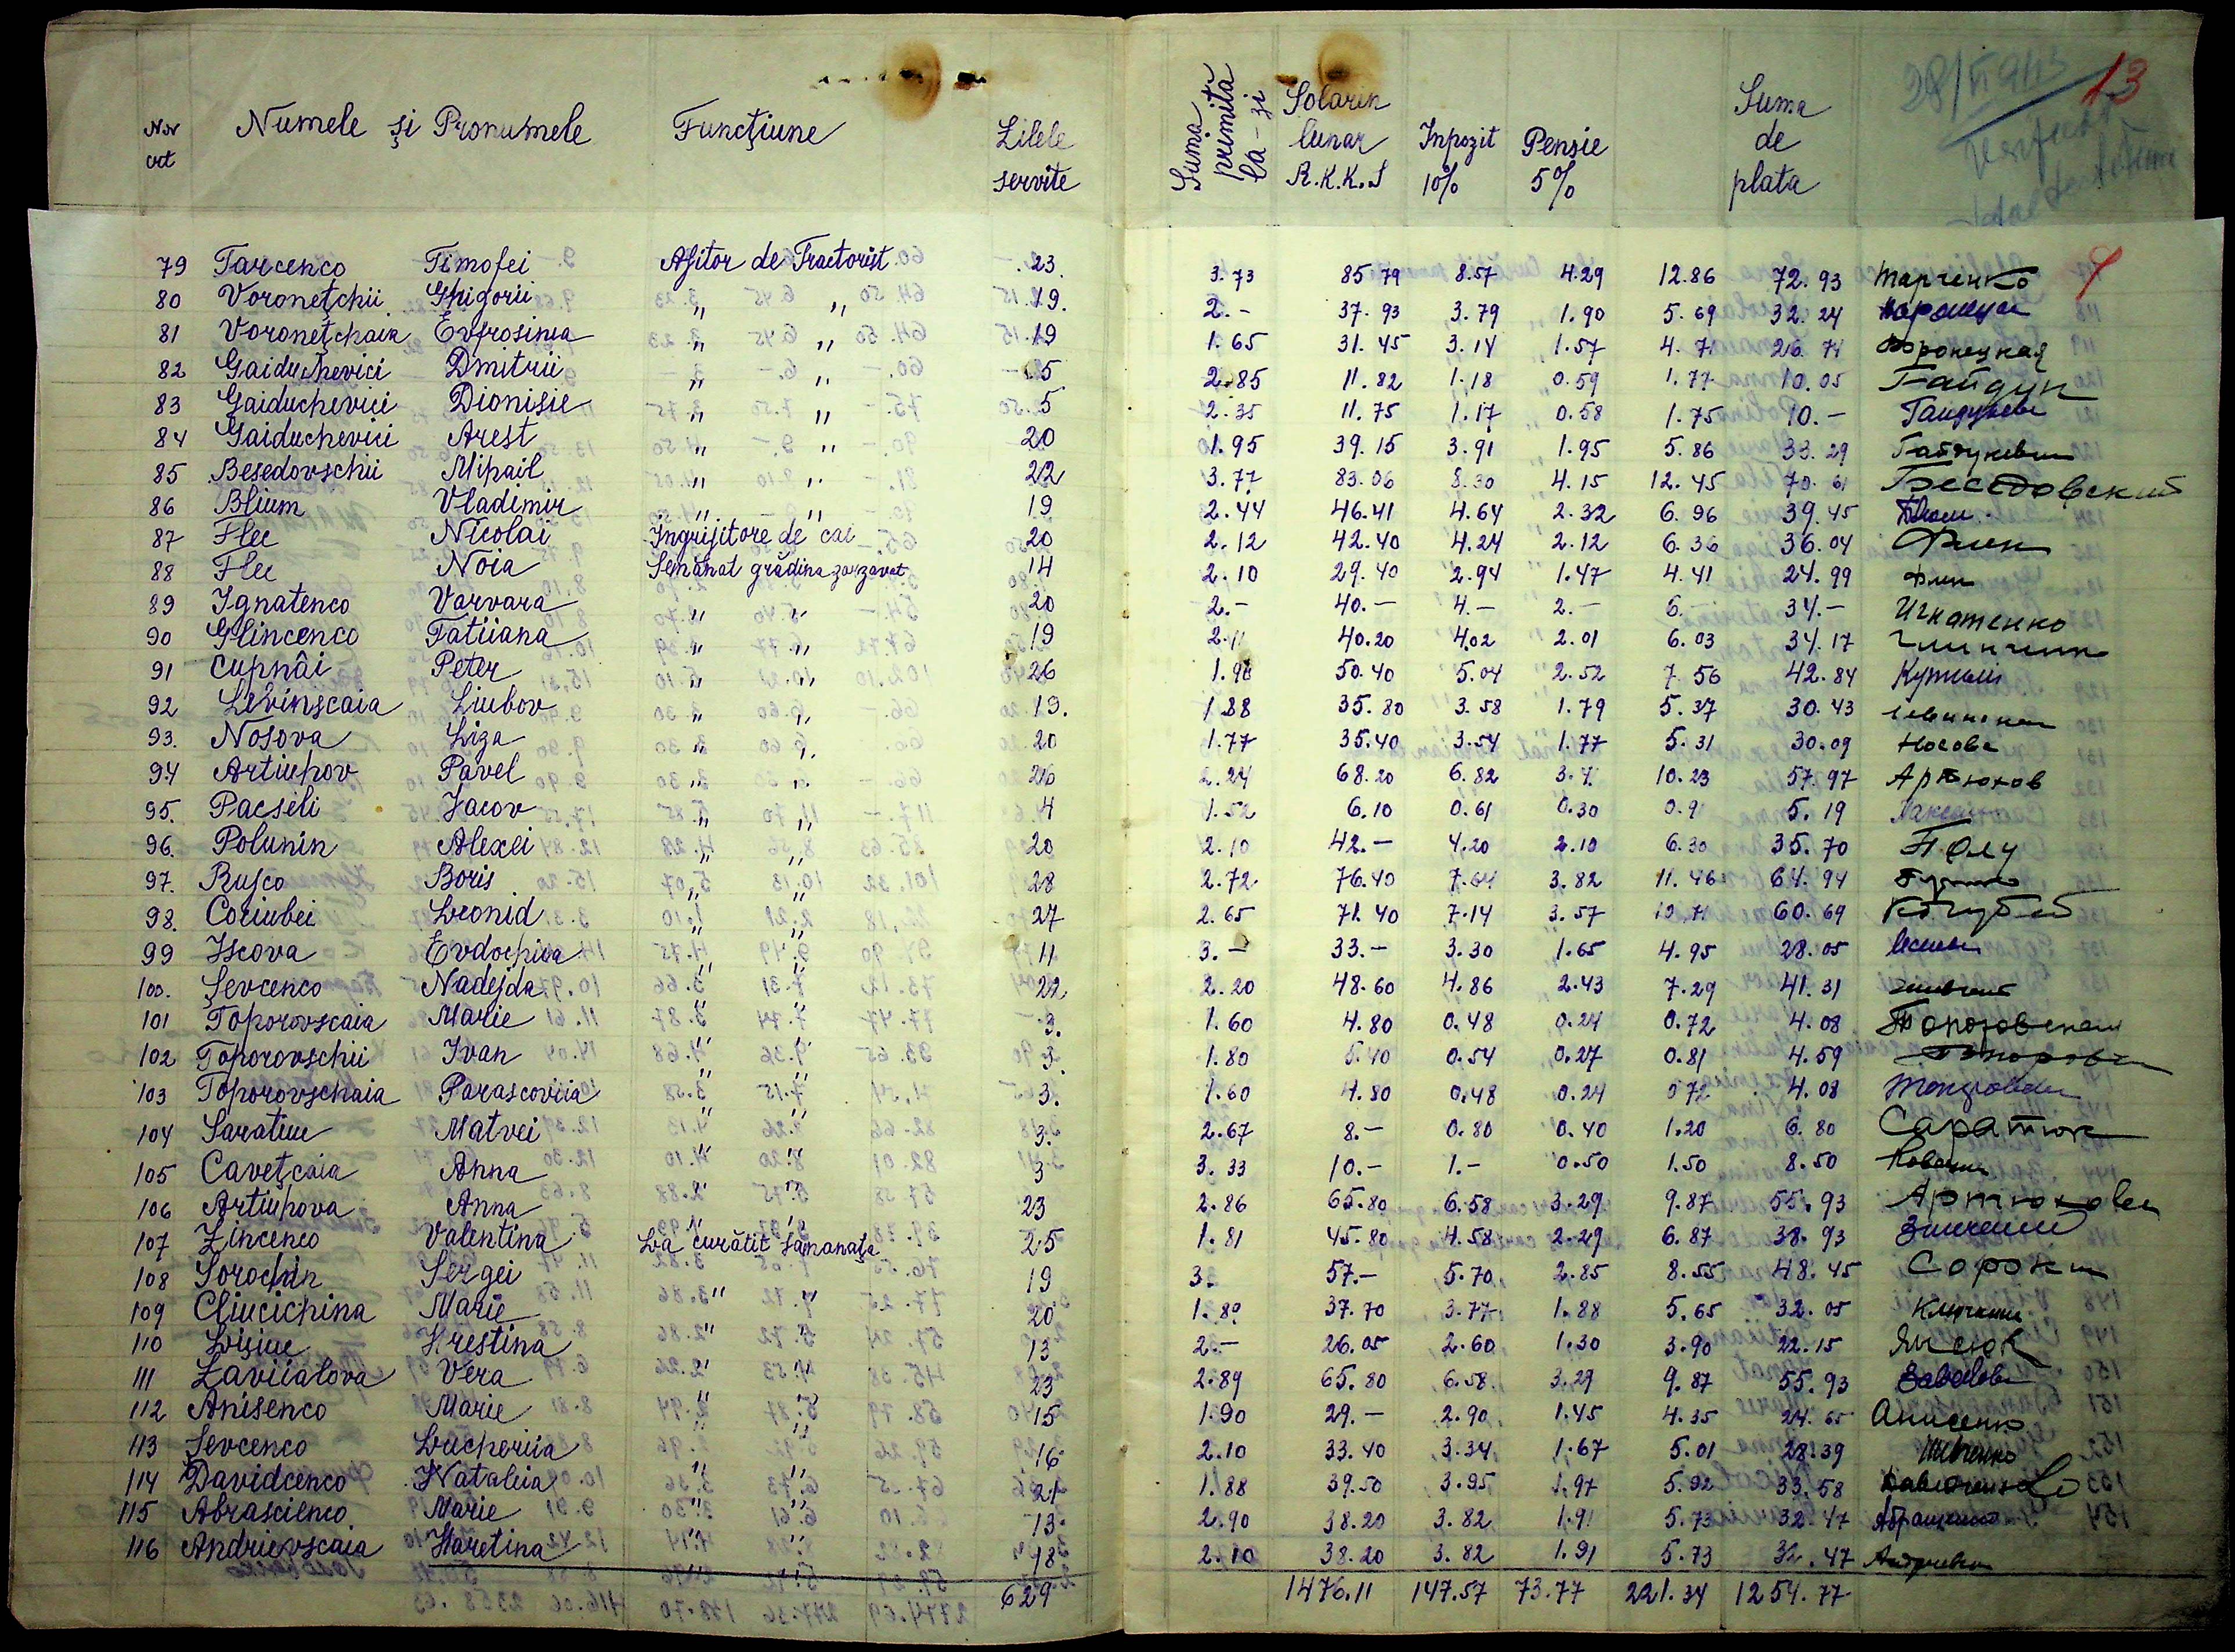 Nor Numele și Pronumele Funcțiune Zilele Suma primită la-zi Solarin Suma 28/VI 943 13
crt servite lunar Inpozit Pensie de
R.K.K.S 10% 5% plata
79 Tarcenco Timofei Ajitor de Tractorist 23. 3.73 85.79 8.57 4.29 12.86 72.93 Тарченко
80 Voronețchii Ghigorii " " 19. 2.- 37.93 3.79 1.90 5.69 32.24
81 Voronețchaia Evfrosinia " " 19 1.65 31.45 3.14 1.57 4.71 26.74 Воронецкая
82 Gaiduchevici Dmitrii " " 5 2.85 11.82 1.18 0.59 1.77 10.05 Гайдук
83 Gaiduchevici Dionisie " " 5 2.35 11.75 1.17 0.58 1.75 10.-
84 Gaiduchevici Arest " " 20 1.95 39.15 3.91 1.95 5.86 33.29
85 Besedovschii Mihail " " 22 3.77 83.06 8.30 4.15 12.45 70.61 Беседовский
86 Blium Vladimir " " 19 2.44 46.41 4.64 2.32 6.96 39.45
87 Flec Nicolai Ingrijitore de cai 20 2.12 42.40 4.24 2.12 6.36 36.04
88 Flec Noia Semănat grădina zarzavat 14 2.10 29.40 2.94 1.47 4.41 24.99
89 Ignatenco Varvara " " 20 2.- 40.- 4.- 2.- 6. 34.- Игнатенко
90 Glincenco Tatiiana " " 19 2.11 40.20 4.02 2.01 6.03 34.17
91 Cupnâi Peter " " 26 50.40 5.04 2.52 7.56 42.84
92 Levinscaia Liubov " " 19. 1.88 35.80 3.58 1.79 5.37 30.43
93. Nosova Liza " " 20 1.77 35.40 3.54 1.77 5.31 30.09 Носова
94 Artiuhov Pavel " " 26 2.24 68.20 6.82 10.23 57.97 Артюхов
95. Pacseli Iacov " " 4 1.52 6.10 0.61 0.30 0.91 5.19
96. Polunin Alexei " " 20 2.10 42.- 4.20 2.10 6.30 35.70 Полу
97. Rusco Boris " " 28 2.72 76.40 7.64 3.82 11.46 64.94
98. Cociubei Leonid " " 27 2.65 71.40 7.14 3.57 10.71 60.69 Кочубей
99 Iscova Evdochiia " " 11 3.- 33.- 3.30 1.65 4.95 28.05
100. Șevcenco Nadejda " " 22 2.20 48.60 4.86 2.43 7.29 41.31
101 Toporovscaia Marie " " 3. 1.60 4.80 0.48 0.24 0.72 4.08
102 Toporovschii Ivan " " 3. 1.80 5.40 0.54 0.27 0.81 4.59
103 Toporovschaia Parascoviia " " 3. 1.60 4.80 0.48 0.24 0 72 4.08
104 Saratiuc Matvei " " 3. 2.67 8.- 0.80 0.40 1.20 6.80 Саратюк
105 Cavețcaia Anna " " 3 3.33 10.- 1.- 0.50 1.50 8.50
106 Artiuhova Anna " " 23 2.86 65.80 6.58 3.29 9.87 55.93 Артюхова
107 Zincenco Valentina La curătit sămanața 25 1.81 45.80 4.58 2.29 6.87 38.93
108 Sorochin Sergei " " 19 3. 57.- 5.70 2.85 8.55 48.45 Сорокин
109 Cliucichina Marie " " 20 1.80 37.70 3.77 1.88 5.65 32.05
110 Lisiuc Hrestina " " 13 2.- 26.05 2.60 1.30 3.90 22.15
111 Zaviialova Vera " " 23 2.89 65.80 6.58 3.29 9.87 55.93
112 Anisenco Marie " " 15 1.90 29.- 2.90 1.45 4.35 24.65 Анисенко
113 Șevcenco Lucheriia " " 16 2.10 33.40 3.34 1.67 5.01 28.39 Шевченко
114 Davidcenco Nataliia " " 21 1.88 39.50 3.95 1.97 5.92 33.58
115 Abrascienco Marie " " 13 2.90 38.20 3.82 1.91 5.73 32.47
116 Andrievscaia Haretina " " 18 2.10 38.20 3.82 1.91 5.73 32.47
629 1476.11 147.57 73.77 221.34 1254.77